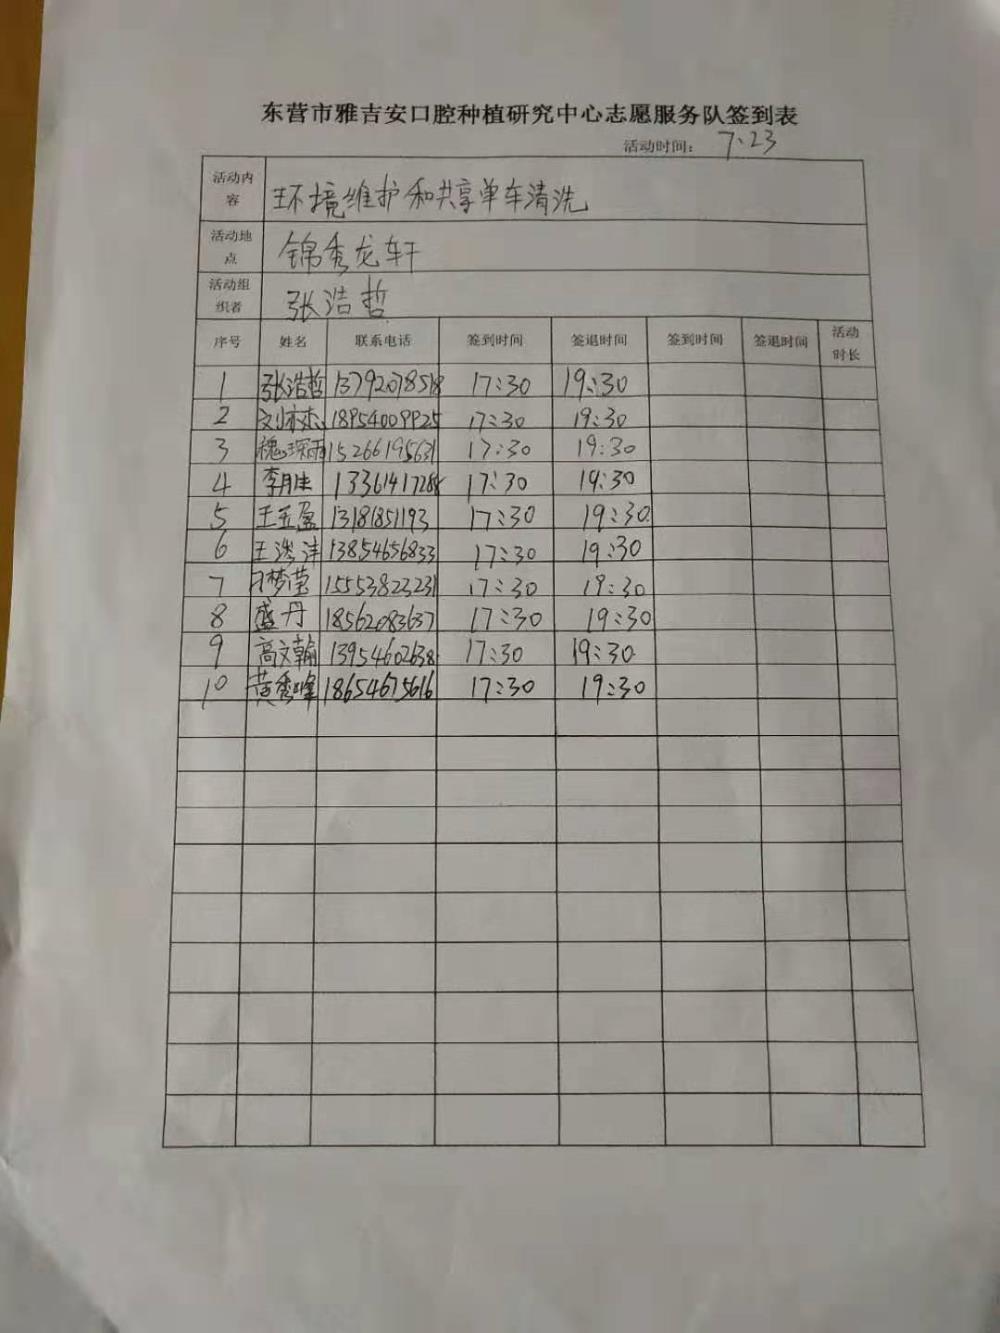 东营市雅吉安口腔种植研究中心志愿服务队签到表
活动时间： 7.23
活动内容 环境维护和共享单车清洗
活动地点 锦秀龙轩
活动组织者 张浩哲
序号 姓名 联系电话 签到时间 签退时间 签到时间 签退时间 活动时长
1 张浩哲 13792078518 17:30 19:30
2 刘林杰 18954009925 17:30 19:30
3 魏琛雨 15266195631 17:30 19:30
4 李月生 13361417288 17:30 19:30
5 王玉盈 13181851193 17:30 19:30
6 王洪沣 13854656833 17:30 19:30
7 梦莹 15553823231 17:30 19:30
8 盛丹 18562083637 17:30 19:30
9 高文翰 13954602638 17:30 19:30
10 黄秀峰 18654675616 17:30 19:30